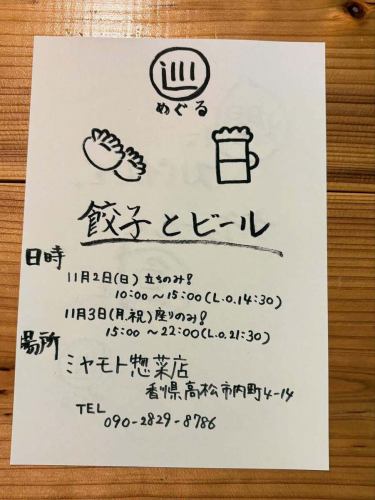 巡
めぐる
餃子とビール
日時
11月2日(日) 立ちのみ!
10:00 ~ 15:00 (L.O.14:30)
11月3日(月.祝) 座りのみ!
15:00 ~ 22:00 (L.O.21:30)
場所
ミヤモト惣菜店
香川県高松市内町4-14
TEL
090-2829-8786